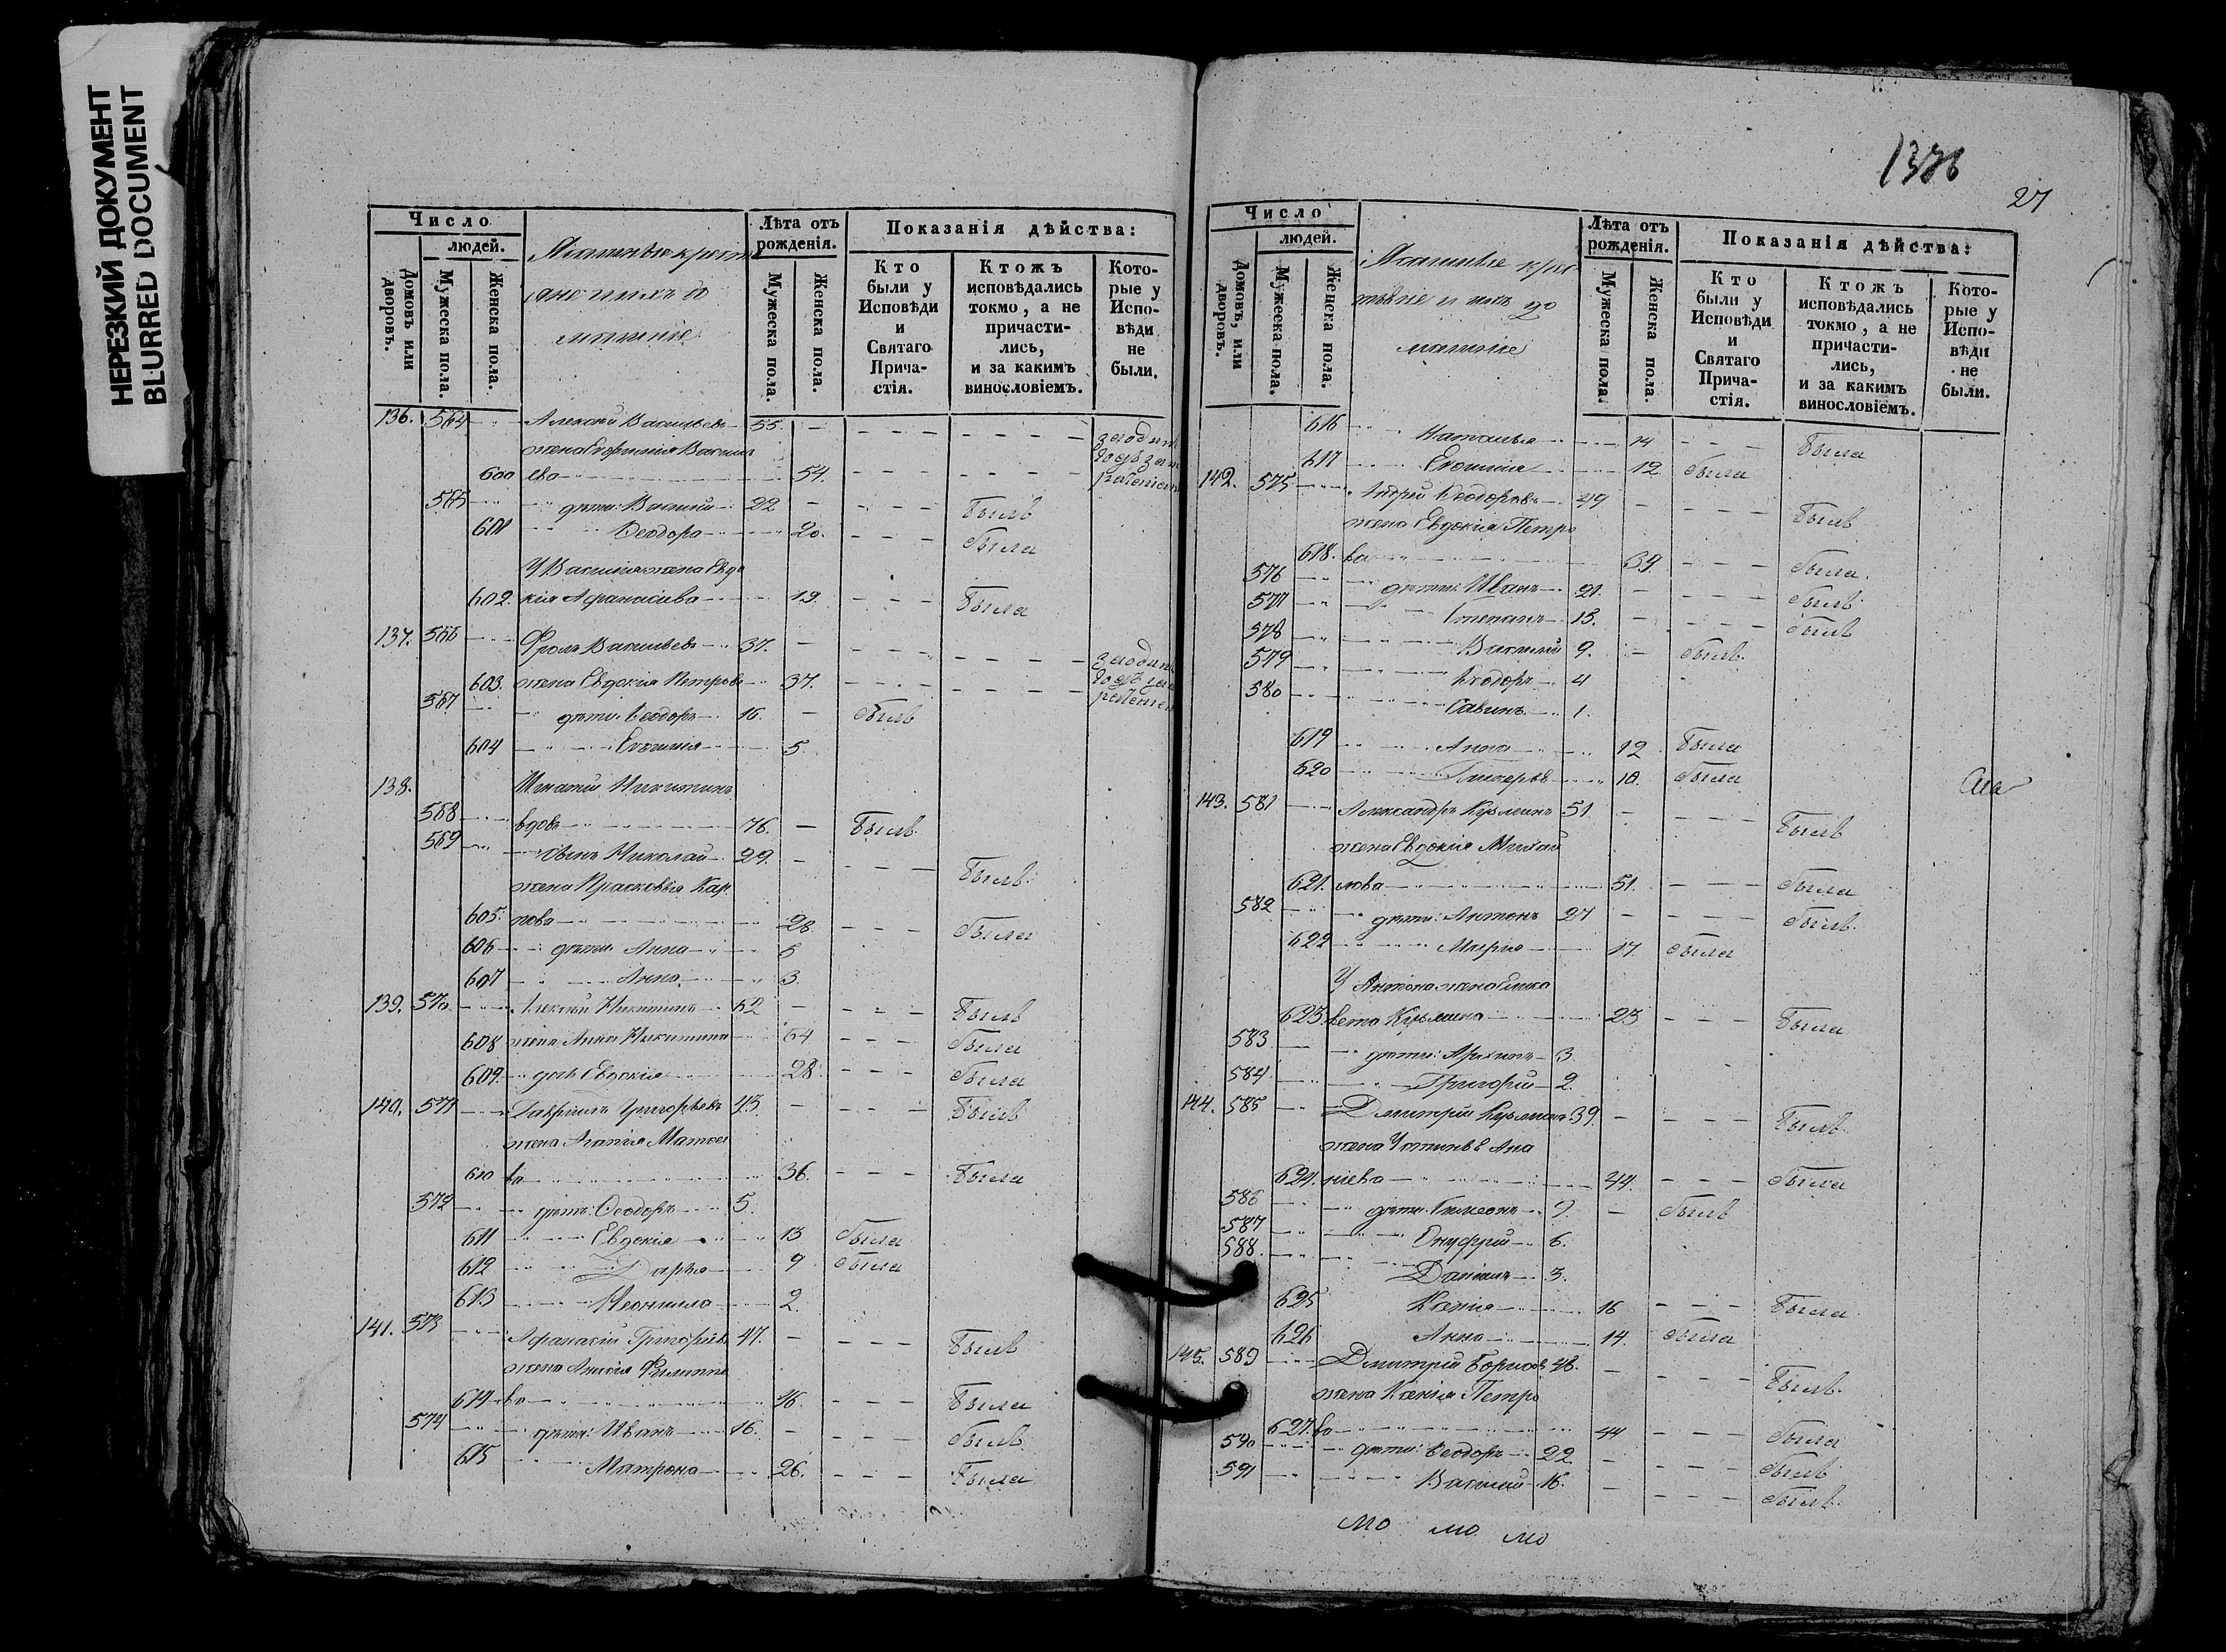 НЕРЕЗКИЙ ДОКУМЕНТ
BLURRED DOCUMENT
Число
людей.
Домовъ или дворовъ.
Мужеска пола.
Женска пола.
Лѣта отъ рожденія.
Мужеска пола.
Женска пола.
Показанія дѣйства:
Кто были у Исповѣди и Святаго Прича-стія.
Ктожъ исповѣдались токмо, а не причасти-лись, и за какимъ винословіемъ.
Кото-рые у Испо-вѣди не были.
136. 564 Алексѣй Васильевъ 55
жена Васил
600 ева 54.
565 дѣти: Василий 22 Былъ
601 Ѳеодора 20. Была
У Василия жена Евдо
602. кія Афанасиева 19. Была
137. 566 Фролъ Васильевъ 37.
603. жена Евдокія Петрова 37.
567 дѣти: Ѳеодоръ 16. Былъ
604 Евфимія 5
138. Игнатий Никитинъ
568 вдовъ 76. Былъ
569 сынъ Николай 29. Былъ
жена Прасковія Кар
605. пова 28 Была
606 дѣти Анна 6
607 Анна 3.
139. 570 Алексѣй Никитинъ 62 Былъ
608 жена Анна Никитина 64 Была
609. дочь Евдокія 28 Была
140. 571 Гавріилъ Григорьевъ 43. Былъ
жена Агапія Матвее
610 ва 36. Была
572 дѣти: Ѳеодоръ 5.
611 Евдокія 13 Была
612 Дарья 9 Была
613 Неонилла 2.
141. 573 Афанасий Григорьевъ 47. Былъ
жена Анисія Филиппо
614 ва 46. Была
574 дѣти: Иванъ 16. Былъ
615 Матрона 26. Была
1376
27
Число
людей.
Домовъ, или дворовъ.
Мужеска пола.
Женска пола.
Лѣта отъ рожденія.
Мужеска пола.
Женска пола.
Показанія дѣйства:
Кто были у Исповѣди и Святаго Прича-стія.
Ктожъ исповѣдались токмо, а не причасти-лись, и за какимъ винословіемъ.
Кото-рые у Испо-вѣди не были.
616 Наталья 14 Была
617 Евфимія 12 Была
142. 575 Андрей Ѳеодоровъ 49 Былъ
жена Евдокія Петро
618. ва 39. Была.
576 дѣти: Иванъ 21. Былъ
577 Степанъ 13. Былъ
578 Василий 9. Былъ.
579 Ѳеодоръ 4
580 Савинъ 1.
619 Анна 12 Была
620 Гликерья 10. Была
143. 581 Александръ Кузьминъ 51 Былъ
жена Евдокія Михай
621. лова 51. Была
582 дѣти: Антонъ 27 Былъ.
622 Марія 17 Была
У Антона жена Елиса
623. вета Кузьмина 23 Была
583 дѣти: Архипъ 3
584 Григорий 2.
144. 585 Дмитрій Кузьминъ 39. Былъ
жена Устинья Ана
624. ніева 44. Была
586 дѣти: Симеонъ 9. Былъ
587 Онуфрий 6.
588. Даніилъ 3.
625 Ксенія 16 Была
626 Анна 14. Была
145. 589 Дмитрій Борисовъ 48. Былъ.
жена Ксенія Петро
627. ва 44 Была
590 дѣти: Ѳеодоръ 22 Былъ
591 Василий 16. Былъ.
мо мо мо